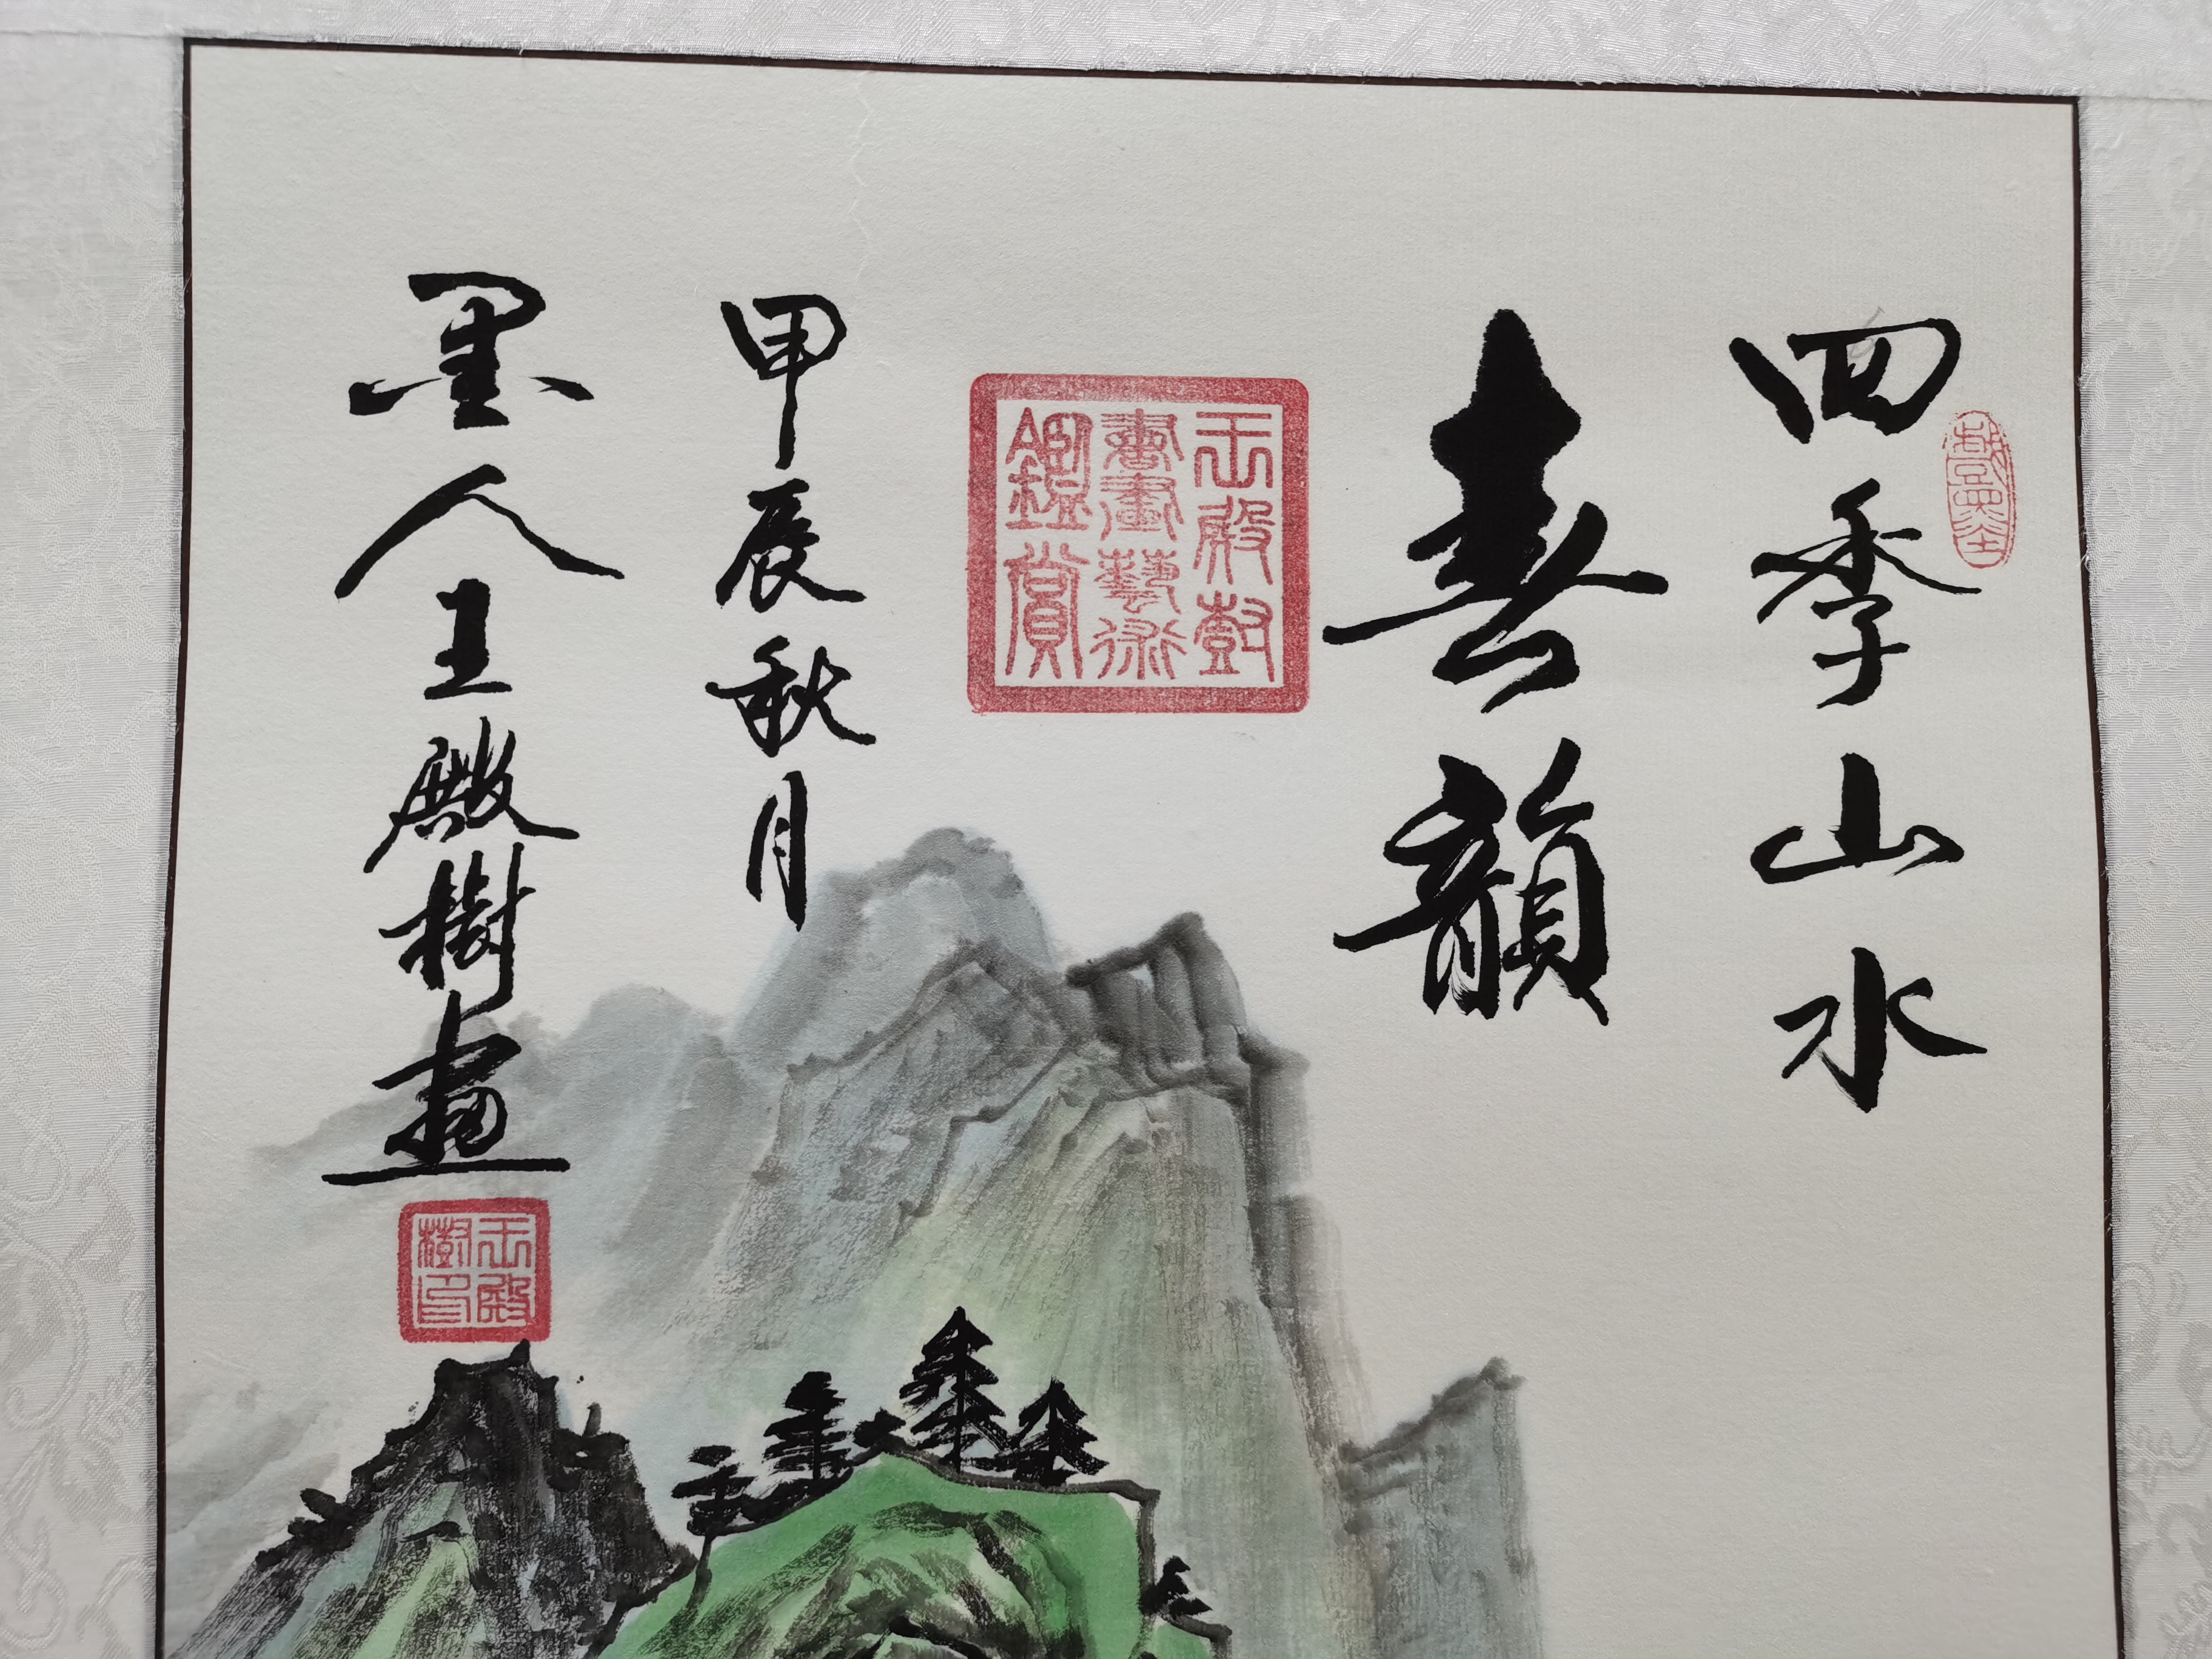 四季山水
春韻
王殿尌
書畫藝術
鑑賞
甲辰秋月
墨人王殿樹畫
王殿
樹印